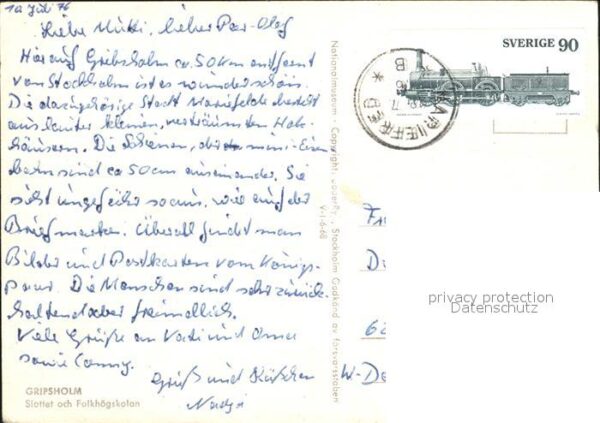 10 Juli 76
Liebe Mutti, lieber Per-Olof
Hier auf Gripsholm ca. 50 km entfernt
von Stockholm ist es wunderschön.
Die dazugehörige Stadt Mariefred besteht
aus lauter kleinen, verträumten Holz-
häusern. Die Schienen, der mini-Eisen-
bahn sind ca 50 cm auseinander. Sie
sieht ungefähr so aus, wie auf der
Briefmarke. Überall findet man
Bilder und Postkarten vom Königs-
paar. Die Menschen sind sehr zurück-
haltend aber freundlich.
Viele Grüße an Vati und Oma
sowie Conny.
Gruß und Küßchen
Nadja
GRIPSHOLM
Slottet och Folkhögskolan
Nationalmuseum - Copyright
Stockholm Godkänd av försvarsstaben
V-1-6-68
SVERIGE 90
MARIEFRED
Fr
D
62
W-De
privacy protection
Datenschutz